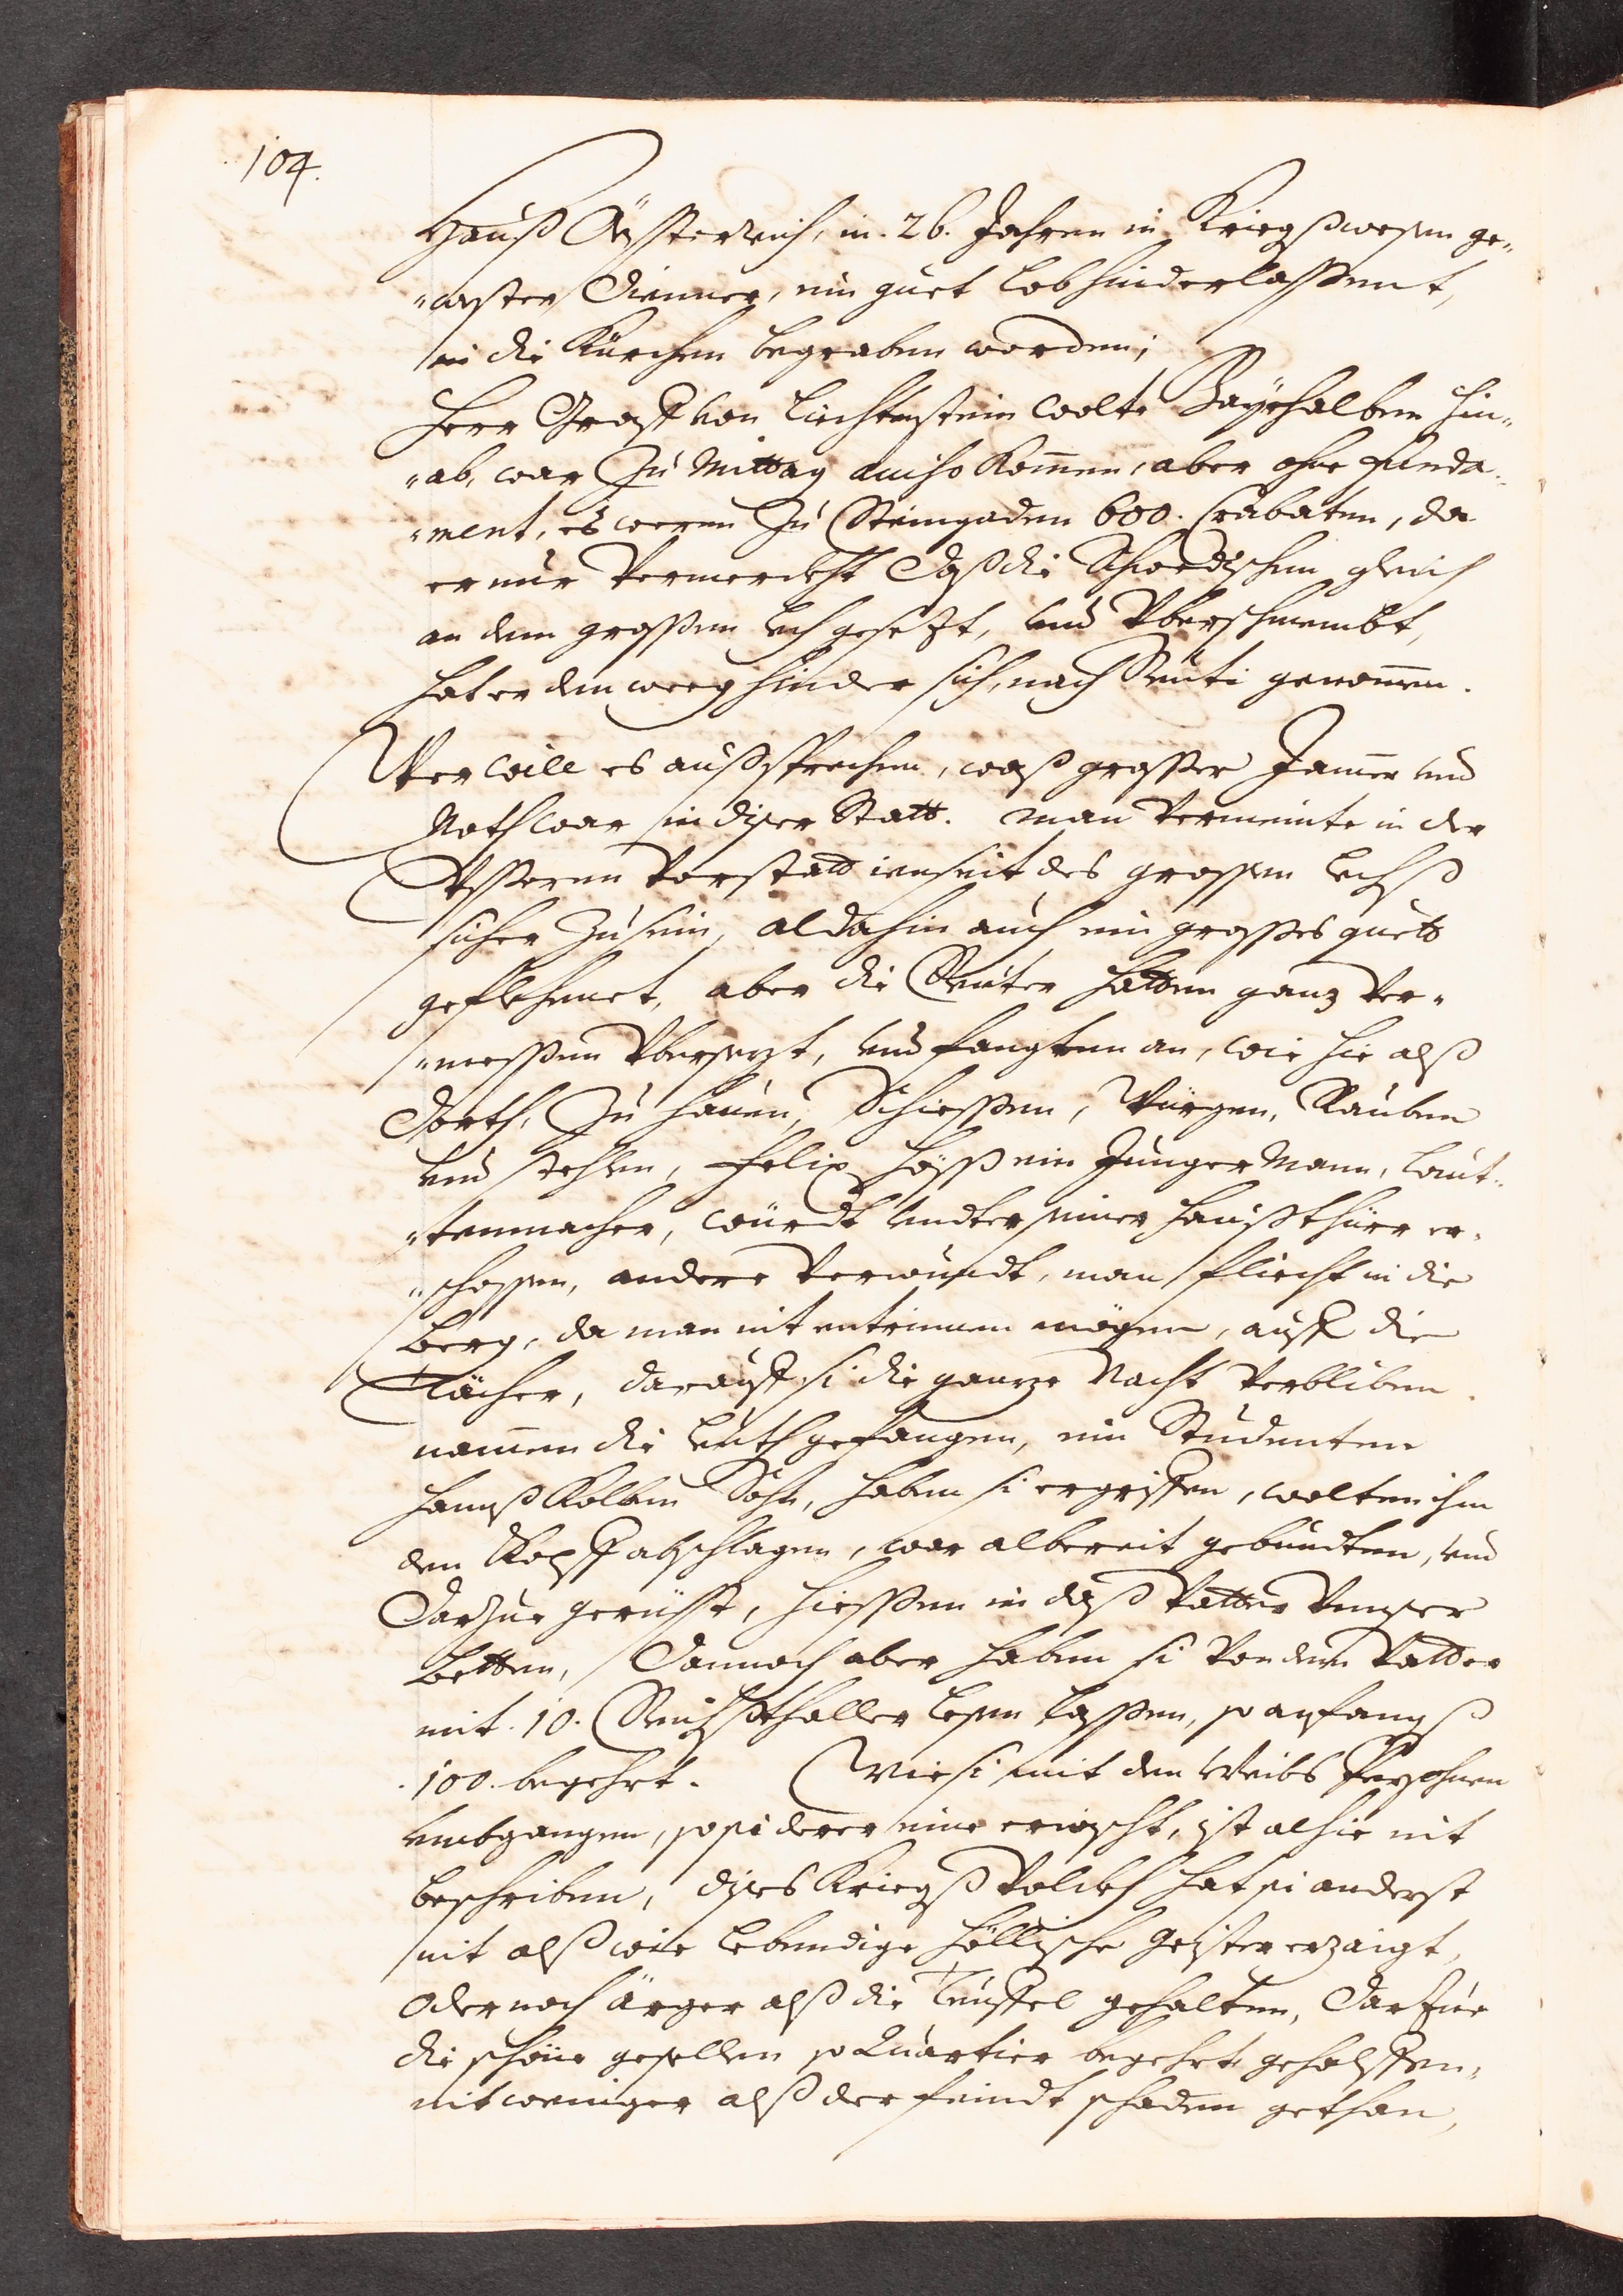 104.
Hauß Össterreich, in. 26. Jahren in Kriegßwesen ge„
„wester Dienner, ein guet Lob hinderlassent,
in die Kürchen begraben worden;
Herr Graff von Liechtenstein wolte Bayrhalben hin„
„ab, war zu Mittag auiso komen, aber ohne funda„
„ment, es weren zu Steingaden 600. Crabaten, da
er nur vermerckht daß die Schwedischen gleich
an dem grossen Lech gesezt, und überschwembt,
hat er den weeg hinder sich, nach Reuti genomen.
Wer will es außsprechen, waß grosser Jamer und
Noth war in diser Statt. man vermeinte in der
Üsseren vorstatt ienseit des grossen Lechß
sicher zu sein, aldahin auch ein grosses guett
geflehnet, aber die Reuter hatten ganz ver„
„messen übersezt, und fangten an, wie hie alß
dorth, zu hauen, Schiessen, Würgen, Rauben
und stehlen, Felix Höß ein Junger Mann, Laut„
„tenmacher, würdt undter seiner haußthürr er„
„schossen, andere verwundt, man fliecht in die
Berg, da man nit entrinnen mögen, auff die
Dächer, darauff si die ganze Nacht verbliben.
namen die Leuth gefangen, ein Studenten
Hanß Kolben Sohn, haben si ergriffen, wolten ihm
den Kopff abschlagen, war albereit gebundten, und
darzue gerüsst, hiessen in daß Vatter Unser
betten, Dannoch aber haben si von dem Vatter
mit. 10. Reichßthaller lesen lassen, so anfangß
.100. begehrt. Wie si mit den Weibs Persohnen
umbgangen, so si derer eine erwischt, ist alhie nit
beschriben, dises Kriegß Volckh hat si anderst
nit alß wie lebendige höllische Geister erzaigt,
oder noch ärger alß die Teuffel gehalten, Darzue
die schöne gesellen so Quartier begehrt geholffen,
nit weniger alß der feindt schaden gethan,